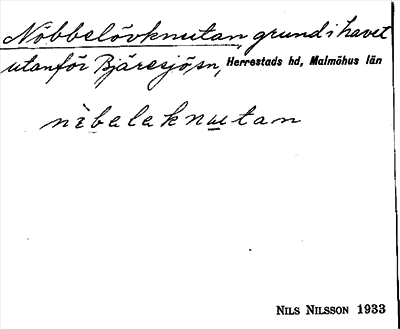 Nöbbelövknutan, grund i havet
utanför Bjäresjö, sn, Herrestads hd, Malmöhus län
nìbelaknu̲tan
NILS NILSSON 1933